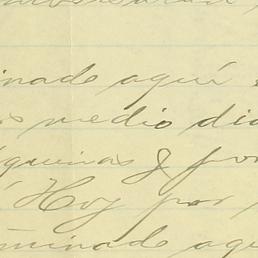 inado aquí
s medio día
quinas & por
Hoy por
minado aqu